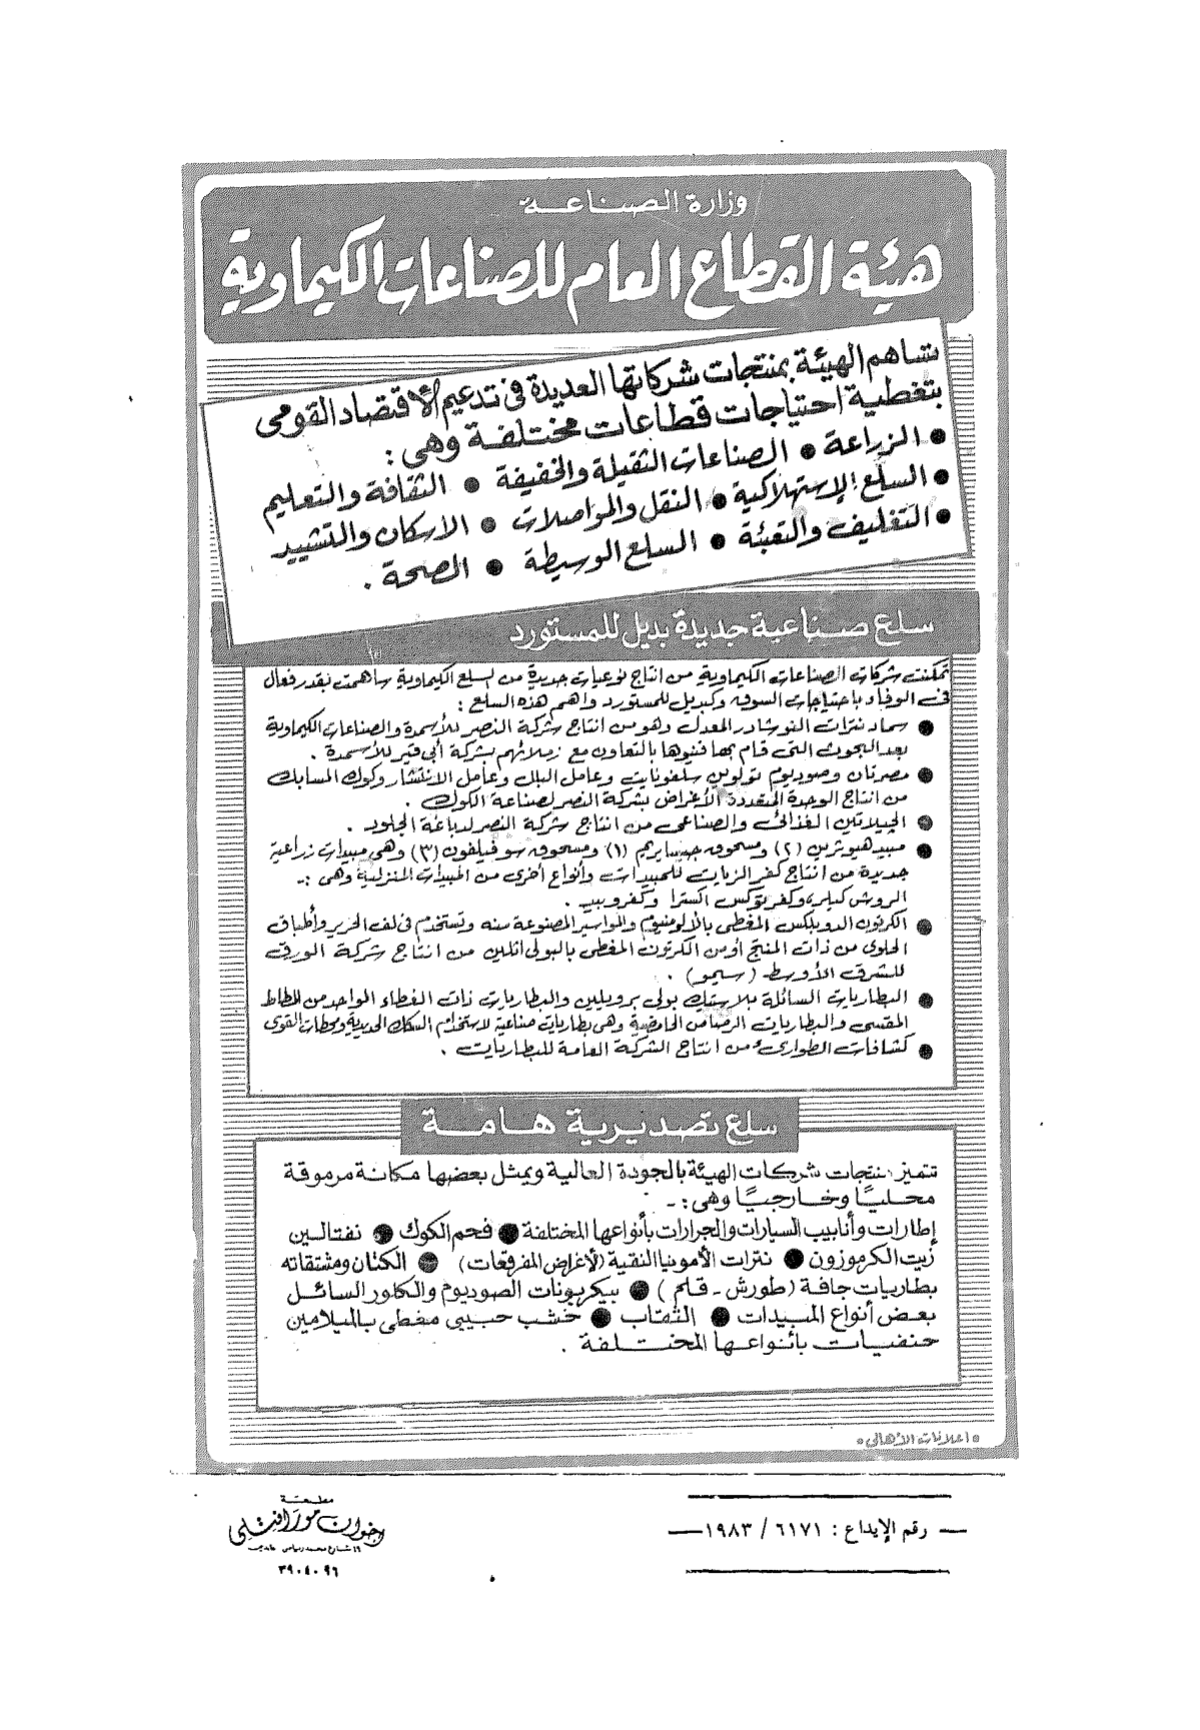 وزارة الصناعة
هيئة القطاع العام للصناعات الكيماوية
تساهم الهيئة بمنتجات شركاتها العديدة فى تدعيم الاقتصاد القومى
بتغطية احتياجات قطاعات مختلفة وهى :
● الزراعة ● الصناعات الثقيلة والخفيفة ● الثقافة والتعليم
● السلع الاستهلاكية ● النقل والمواصلات ● الاسكان والتشييد
● التغليف والتعبئة ● السلع الوسيطة ● الصحة .
سلع صناعية جديدة بديل للمستورد
تمكنت شركات الصناعات الكيماوية من انتاج نوعيات جديدة من السلع الكيماوية ساهمت بقدر فعال
فى الوفاء باحتياجات السوق وكبديل للمستورد واهم هذه السلع :
● سماد نترات النوشادر المعدل وهو من انتاج شركة النصر للأسمدة والصناعات الكيماوية
بعد البحوث التى قام بها فنيوها بالتعاون مع زملائهم بشركة أبى قير للأسمدة .
● وصوديوم تولوين سلفونات وعامل البلل وعامل الانتشار وكوك المسابك
من انتاج الوحدة المتعددة الأغراض بشركة النصر لصناعة الكوك .
● الجيلاتين الغذائى والصناعى من انتاج شركة النصر لدباغة الجلود .
● مبيد (٢) ومسحوق (١) ومسحوق (٣) وهى مبيدات زراعية
جديدة من انتاج كفر الزيات للمبيدات وأنواع أخرى من المبيدات المنزلية وهى :ـ
الروش كيلر وكفروتوكس اكسترا .
● الكرتون الدوبلكس المغطى بالألومنيوم والمواسير المصنوعة منه وتستخدم فى لف الحرير وأطباق
الحلوى من ذات المنتج أو من الكرتون المغطى بالبولى اثلين من انتاج شركة الورق
للشرق الأوسط ( سيمو ) .
● البطاريات السائلة بلاستيك بولى بروبيلين والبطاريات ذات الغطاء الواحد من المطاط
المقسى والبطاريات الرصاص الحامضية وهى بطاريات صناعية لاستخدام السكك الحديدية ومحطات القوى
● كشافات الطوارىء من انتاج الشركة العامة للبطاريات .
سلع تصديرية هامة
تتميز منتجات شركات الهيئة بالجودة العالية ويمثل بعضها مكانة مرموقة
محليًا وخارجيًا وهى :ـ
إطارات وأنابيب السيارات والجرارات بأنواعها المختلفة ● فحم الكوك ● نفتالين
زيت الكرموزون ● نترات الأمونيا النقية (لأغراض المفرقعات) ● الكتان ومشتقاته
بطاريات جافة (طورش ـ قلم ) ● بيكربونات الصوديوم والكلور السائل
بعض أنواع المبيدات ● الثقاب ● خشب حبيبى مغطى بالميلامين
حنفيات بأنواعها المختلفة .
• اعلانات الأهالى •
— رقم الإيداع : ٦١٧١ / ١٩٨٣ —
مطبعة
إخوان مورافتلى
١٩ شارع محمد رياض عابدين
٣٩٠٤٠٩٦